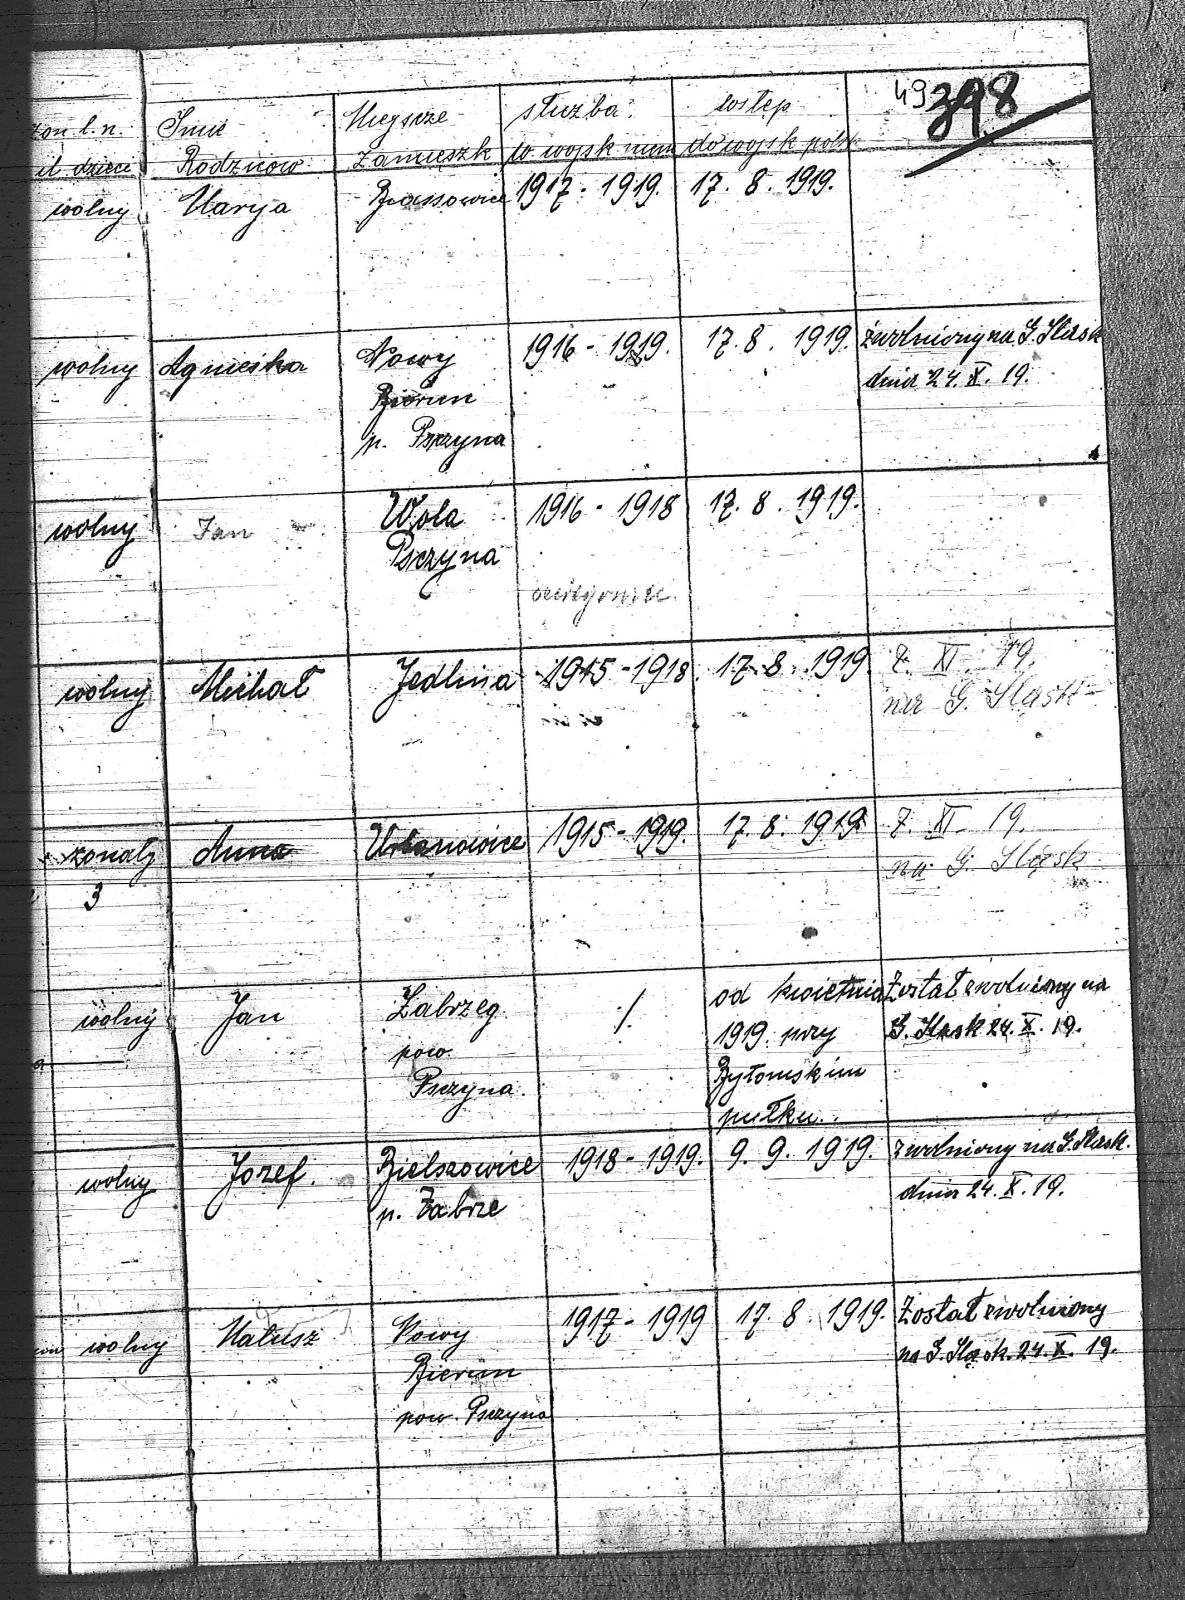 49 398
żon l. n. Imię Miejsce służba wstęp
il dzieci Rodziców zamieszk w wojsk niem do wojsk polsk
wolny Marya Brassowice 1917 - 1919. 17. 8. 1919.
wolny Agnieśka Nowy 1916 - 1919. 17. 8. 1919. zwolniony na G. Sląsk
Bierun dnia 24. X. 19.
p. Psczyna
wolny Jan Wola 1916 - 1918 17. 8. 1919.
Psczyna
wolny Michał Jedlina 1915 - 1918. 17. 8. 1919 7. XI. 19.
na G. Sląsk
żonaty Anna Urbanowice 1915 - 1919. 17. 8. 1919 7. XI. 19.
3 na G. Sląsk
wolny Jan Zabrzeg ./. od kwietnia Został zwolniony na
pow. 1919. przy G. Sląsk 24. X. 19.
Psczyna. Bytomskim
pułku.
wolny Jozef. Bielszowice 1918 - 1919. 9. 9. 1919. zwolniony na G. Sląsk.
p. Zabrze dnia 24. X. 19.
wolny Matusz Nowy 1917 - 1919 17. 8. 1919. Został zwolniony
Bierun na G. Sląsk. 24. X. 19.
pow. Psczyna